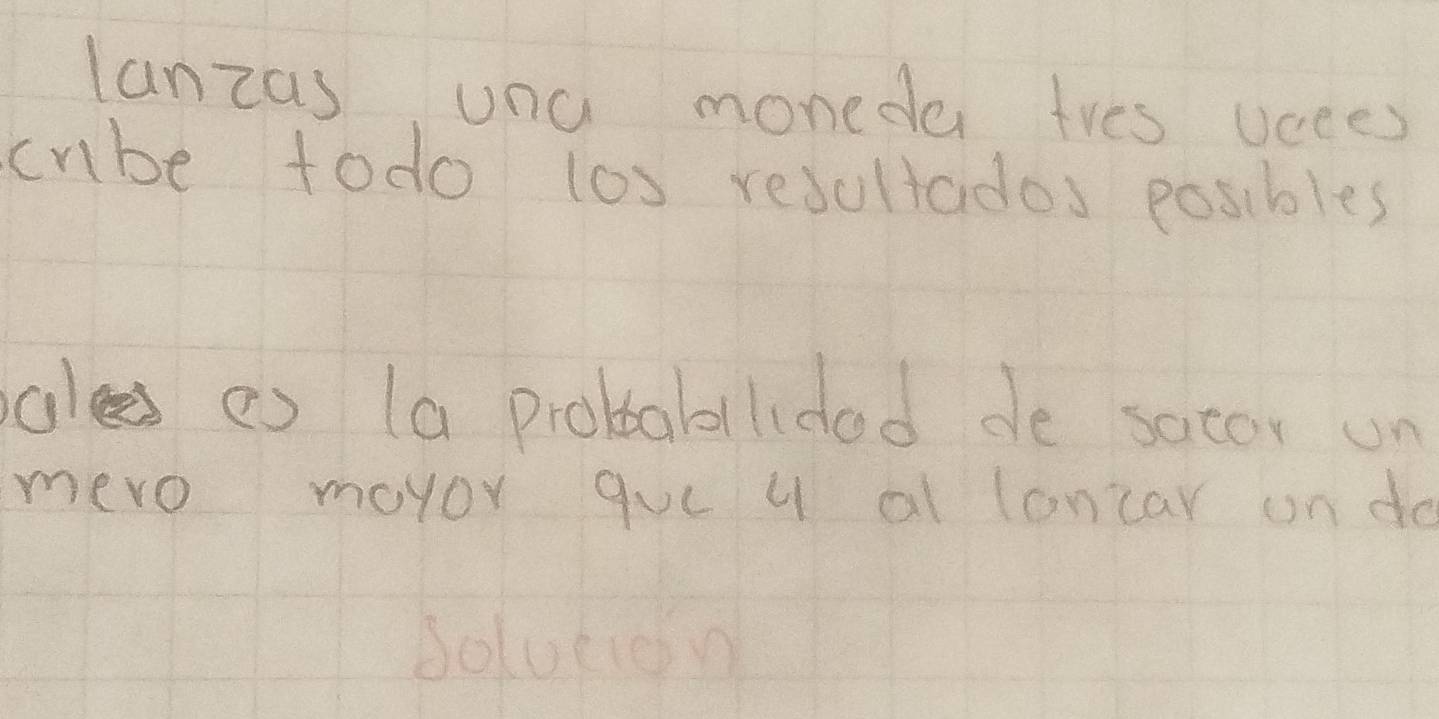 lanzas una moneda tres veces
cribe todo los resultados posibles
ales es la probabilidad de sacar un
mero mayor que 4 al lanzar un da
Solucion